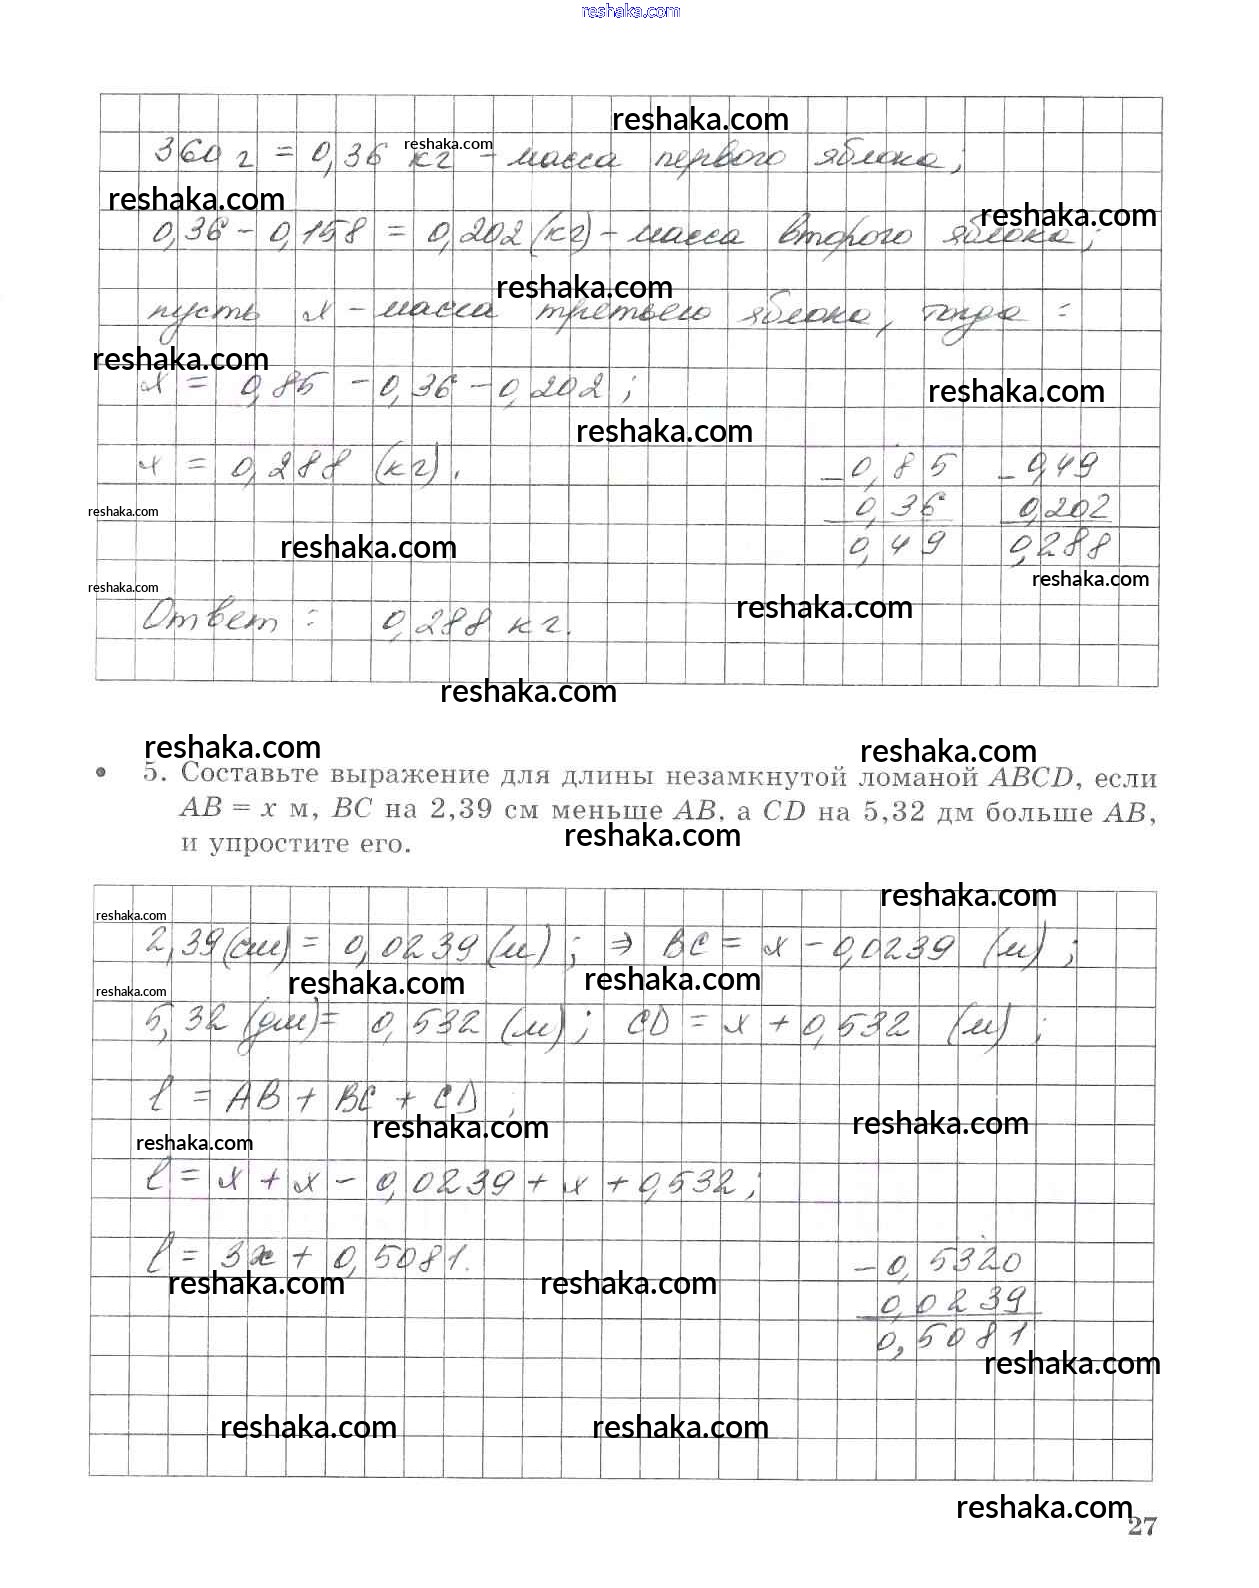 reshaka.com
reshaka.com
360 г = 0,36 кг - масса первого яблока;
reshaka.com
reshaka.com
reshaka.com
0,36 - 0,158 = 0,202 (кг) - масса второго яблока;
reshaka.com
пусть x - масса третьего яблока, тогда :
reshaka.com
x = 0,85 - 0,36 - 0,202 ;
reshaka.com
reshaka.com
x = 0,288 (кг) .
- 0,85 - 0,49
reshaka.com
0,36 0,202
reshaka.com
0,49 0,288
reshaka.com
reshaka.com
reshaka.com
Ответ : 0,288 кг.
reshaka.com
reshaka.com
reshaka.com
• 5. Составьте выражение для длины незамкнутой ломаной ABCD, если
AB = x м, BC на 2,39 см меньше AB, а CD на 5,32 дм больше AB,
reshaka.com
и упростите его.
reshaka.com
reshaka.com
2,39 (см) = 0,0239 (м) ; ⇒ BC = x - 0,0239 (м) ;
reshaka.com
reshaka.com
reshaka.com
5,32 (дм) = 0,532 (м) ; CD = x + 0,532 (м) ;
l = AB + BC + CD ;
reshaka.com
reshaka.com
reshaka.com
l = x + x - 0,0239 + x + 0,532 ;
l = 3x + 0,5081.
- 0,5320
reshaka.com
reshaka.com
0,0239
0,5081
reshaka.com
reshaka.com
reshaka.com
reshaka.com
27